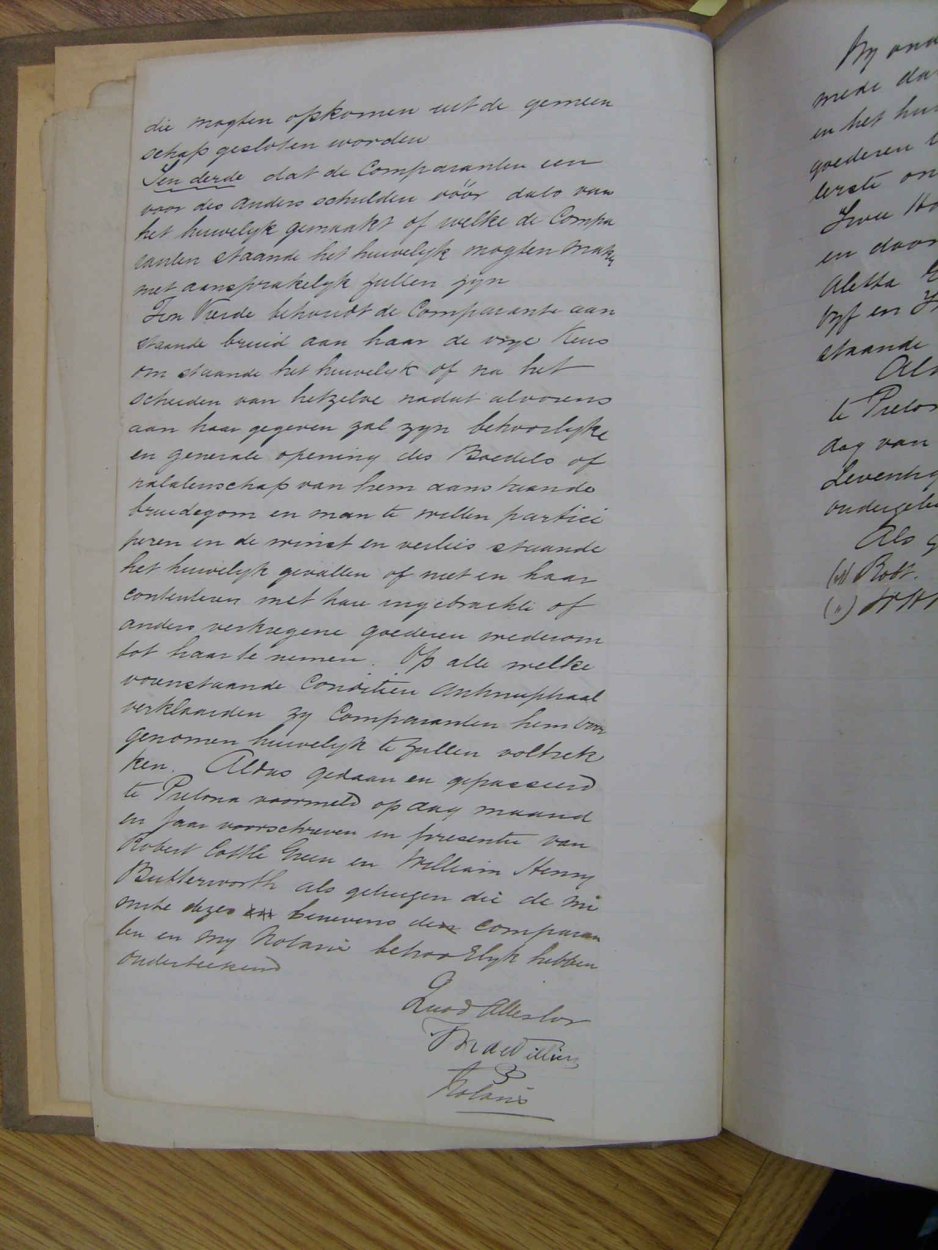 die mogten opkomen uit de gemeen
schap gesloten worden
Ten derde dat de Comparanten een
voor des anders schulden vóór dato van
het huwelyk gemaakt of welke de Compa
ranten staande het huwelyk mogten maken
niet aansprakelyk zullen zyn
Ten Vierde behoudt de Comparante aan
staande bruid aan haar de vrye keus
om staande het huwelyk of na het
scheiden van hetzelve nadat alvorens
aan haar gegeven zal zyn behoorlyke
en generale opening des Boedels of
nalatenschap van hem aanstaande
bruidegom en man te willen partici
peren in de winst en verlies staande
het huwelyk gevallen of niet en haar
contenteren met hare ingebrachte of
anders verkregene goederen wederom
tot haar te nemen. Op alle welke
voornstaande Conditien Antenuptiaal
verklaarden zy Comparanten hem voor
genomen huwelyk te zullen voltrek
ken. Aldus gedaan en gepasseerd
te Pretoria voormeld op dag maand
en jaar voorschreven in presentie van
Robert Cottle Green en William Henry
Butterworth als getuigen die de mi
nute dezes benevens de Comparan
ten en my Notaris behoorlyk hebben
onderteekend
Quod Attestor
de Villiers
Notaris
By
mede
en het
goederen
eerste
Twee
en door
Aletta
Vyf en
staande
te
dag van
Als
Robt.